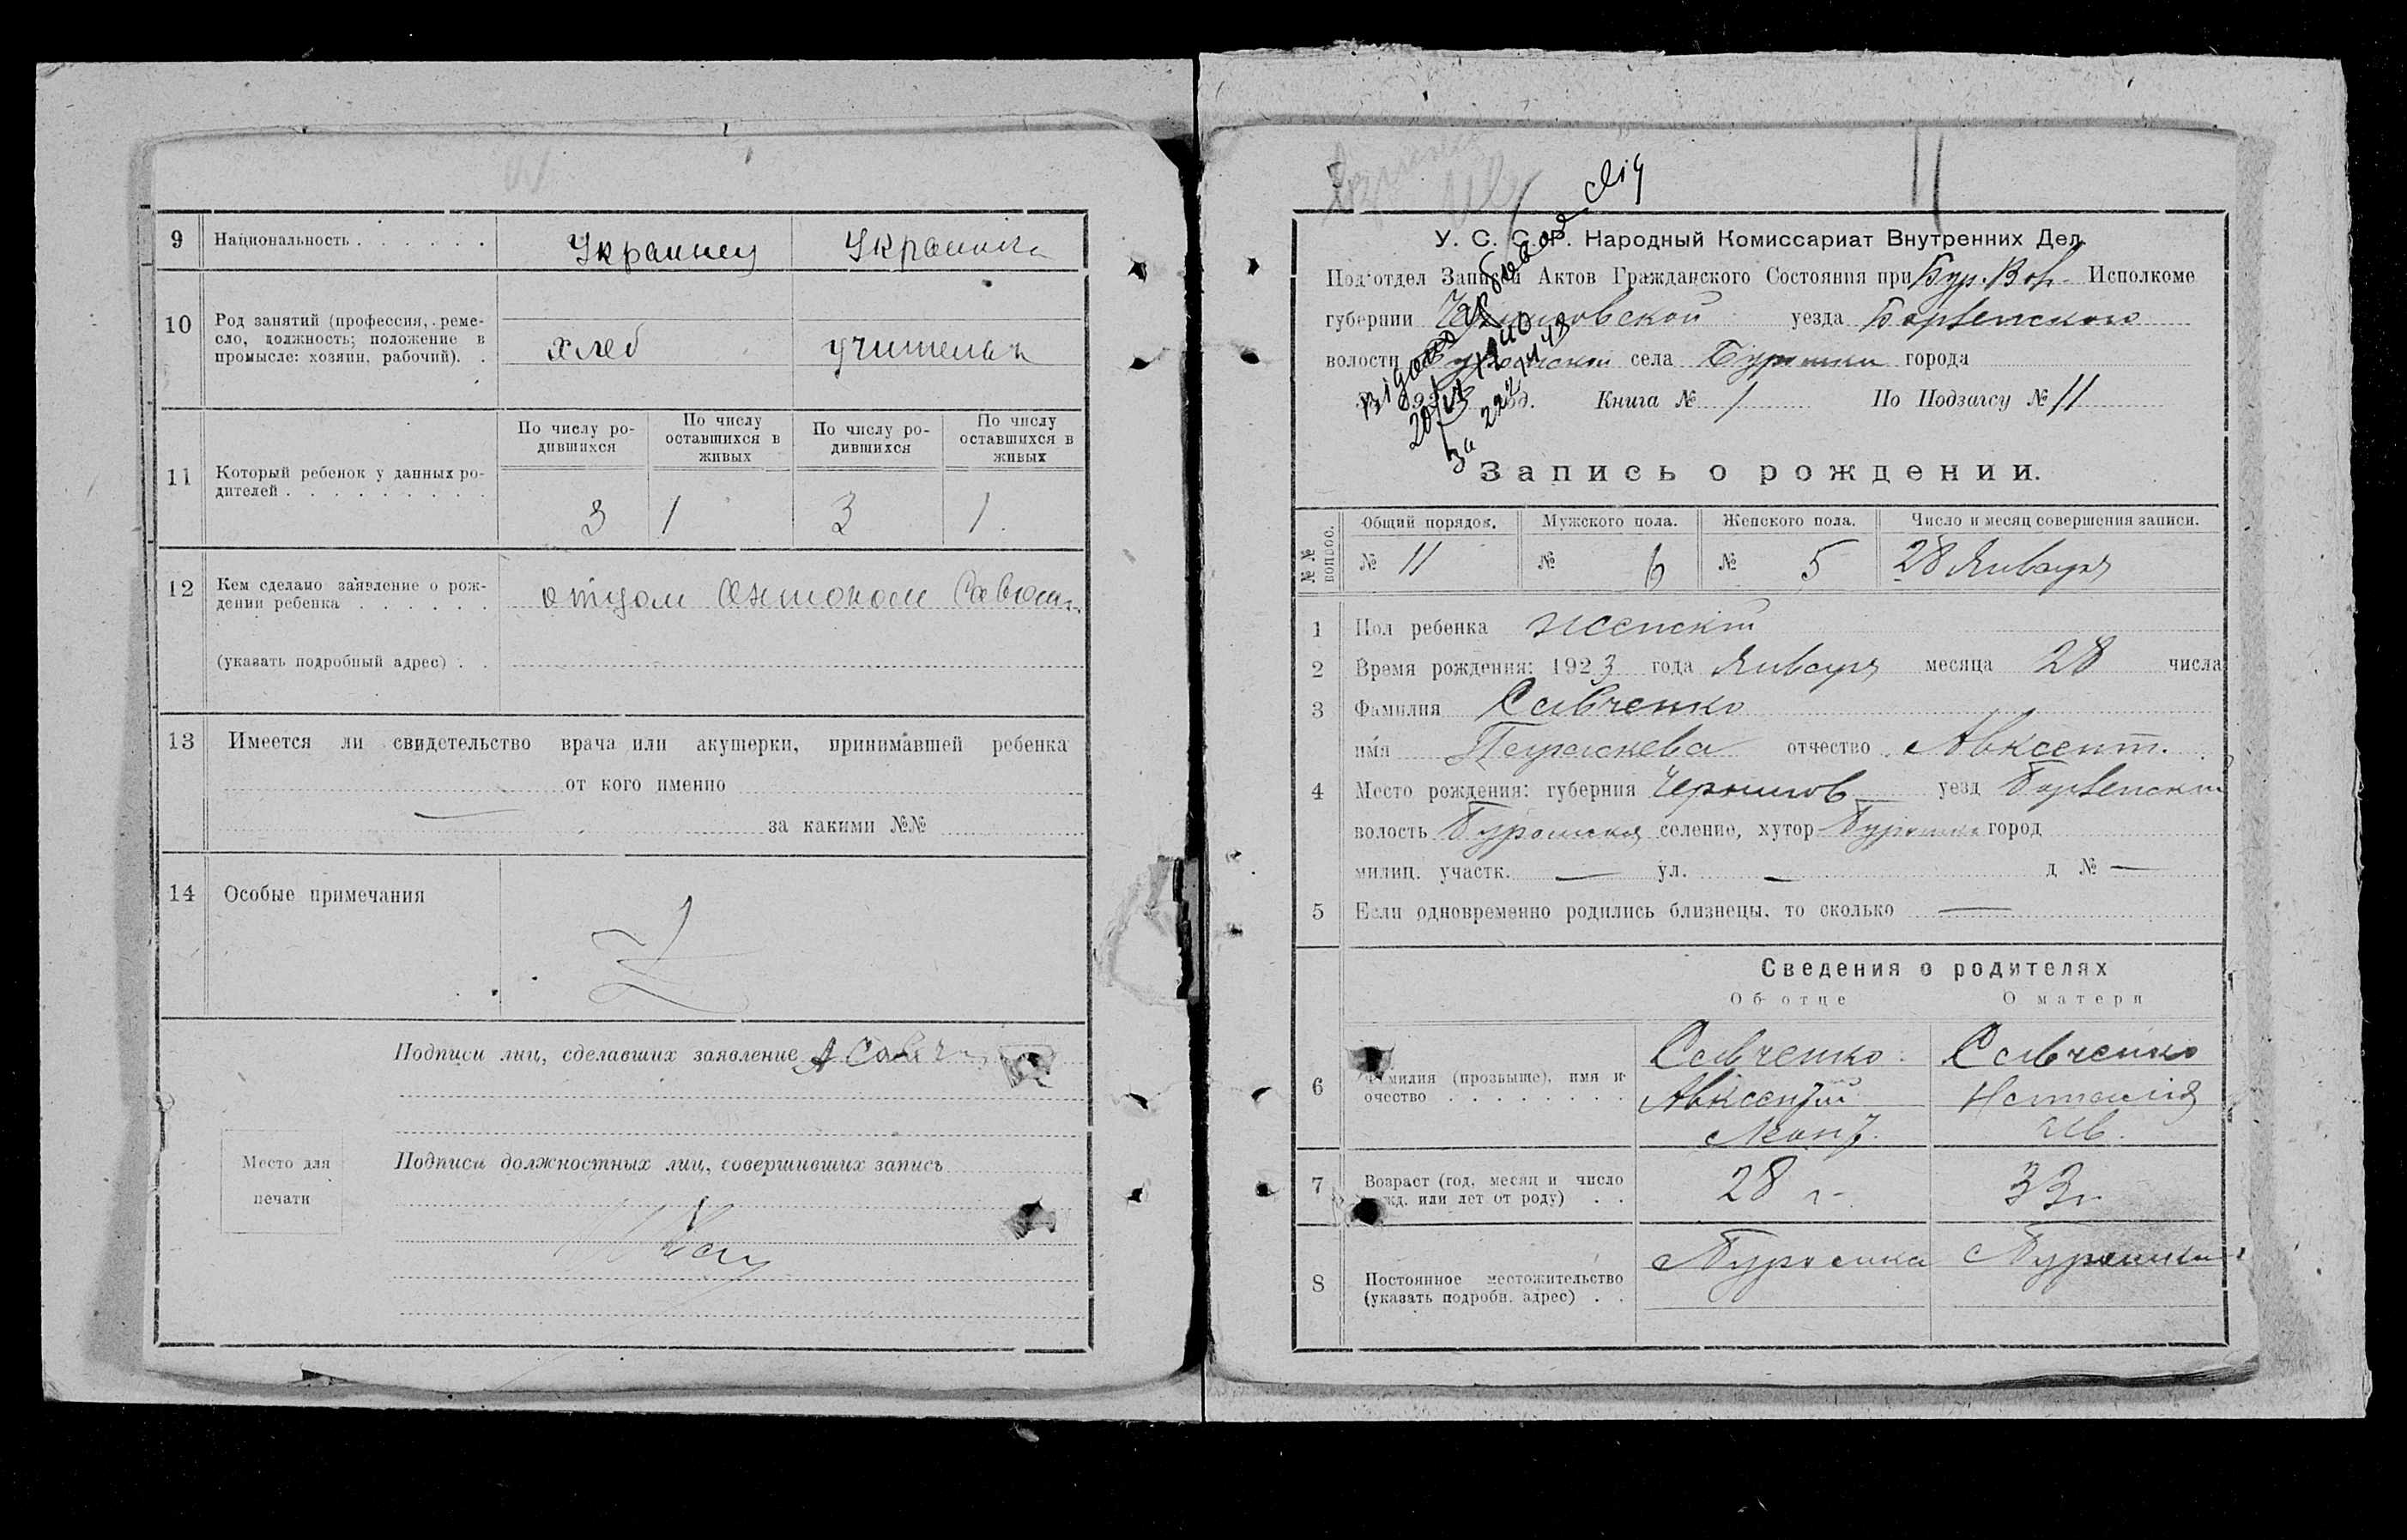 9 Национальность . . . . . . Украинец Украинка
10 Род занятий (профессия, реме-
сло, должность; положение в
промысле: хозяин, рабочий). . хлеб учительн
11 Который ребенок у данных ро-
дителей . . . . . . . . .
По числу ро-
дившихся
По числу
оставшихся в
живых
По числу ро-
дившихся
По числу
оставшихся в
живых
3 1 3 1.
12 Кем сделано заявление о рож-
дении ребенка . . . . . . отцом Антоном
(указать подробный адрес) . .
13 Имеется ли свидетельство врача или акушерки, принимавшей ребенка
от кого именно
— за какими №№
14 Особые примечания
Подписи лиц, сделавших заявление А Савч
Подписи должностных лиц, совершивших запись
Место для
печати
11
У. С. С. Р. Народный Комиссариат Внутренних Дел.
Под'отдел Записи Актов Гражданского Состояния при Бур. Вол. Исполкоме
губернии Черниговской уезда Борзенского
волости села города
Книга № 1 По Подзагсу № 11
Запись о рождении.
№№ вопрос.
Общий порядок. Мужского пола. Женского пола. Число и месяц совершения записи.
№ 11 № 6 № 5 28 Января
1 Пол ребенка женский
2 Время рождения: 1923 года Января месяца 28 числа
3 Фамилия Савченко
имя Параскева отчество Авксент.
4 Место рождения: губерния Чернигов уезд Борзенский
волость Буромская селение, хутор Буромка город
милиц. участк. — ул. — д № —
5 Если одновременно родились близнецы, то сколько —
Сведения о родителях
Об отце О матери
6 Фамилия (прозвыще), имя и
очество . . . . . . . .
Савченко Савченко
Авксентий Наталия
Леонт. Ив.
7 Возраст (год, месяц и число
рожд. или лет от роду) . . 28 г. 33 г.
8 Постоянное местожительство
(указать подробн. адрес) . .
с Буромка с Буромка